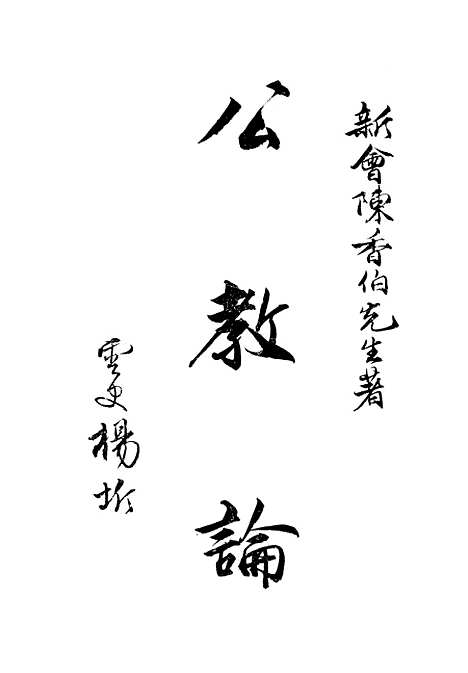 新會陳香伯先生著
公教論
雲史楊圻